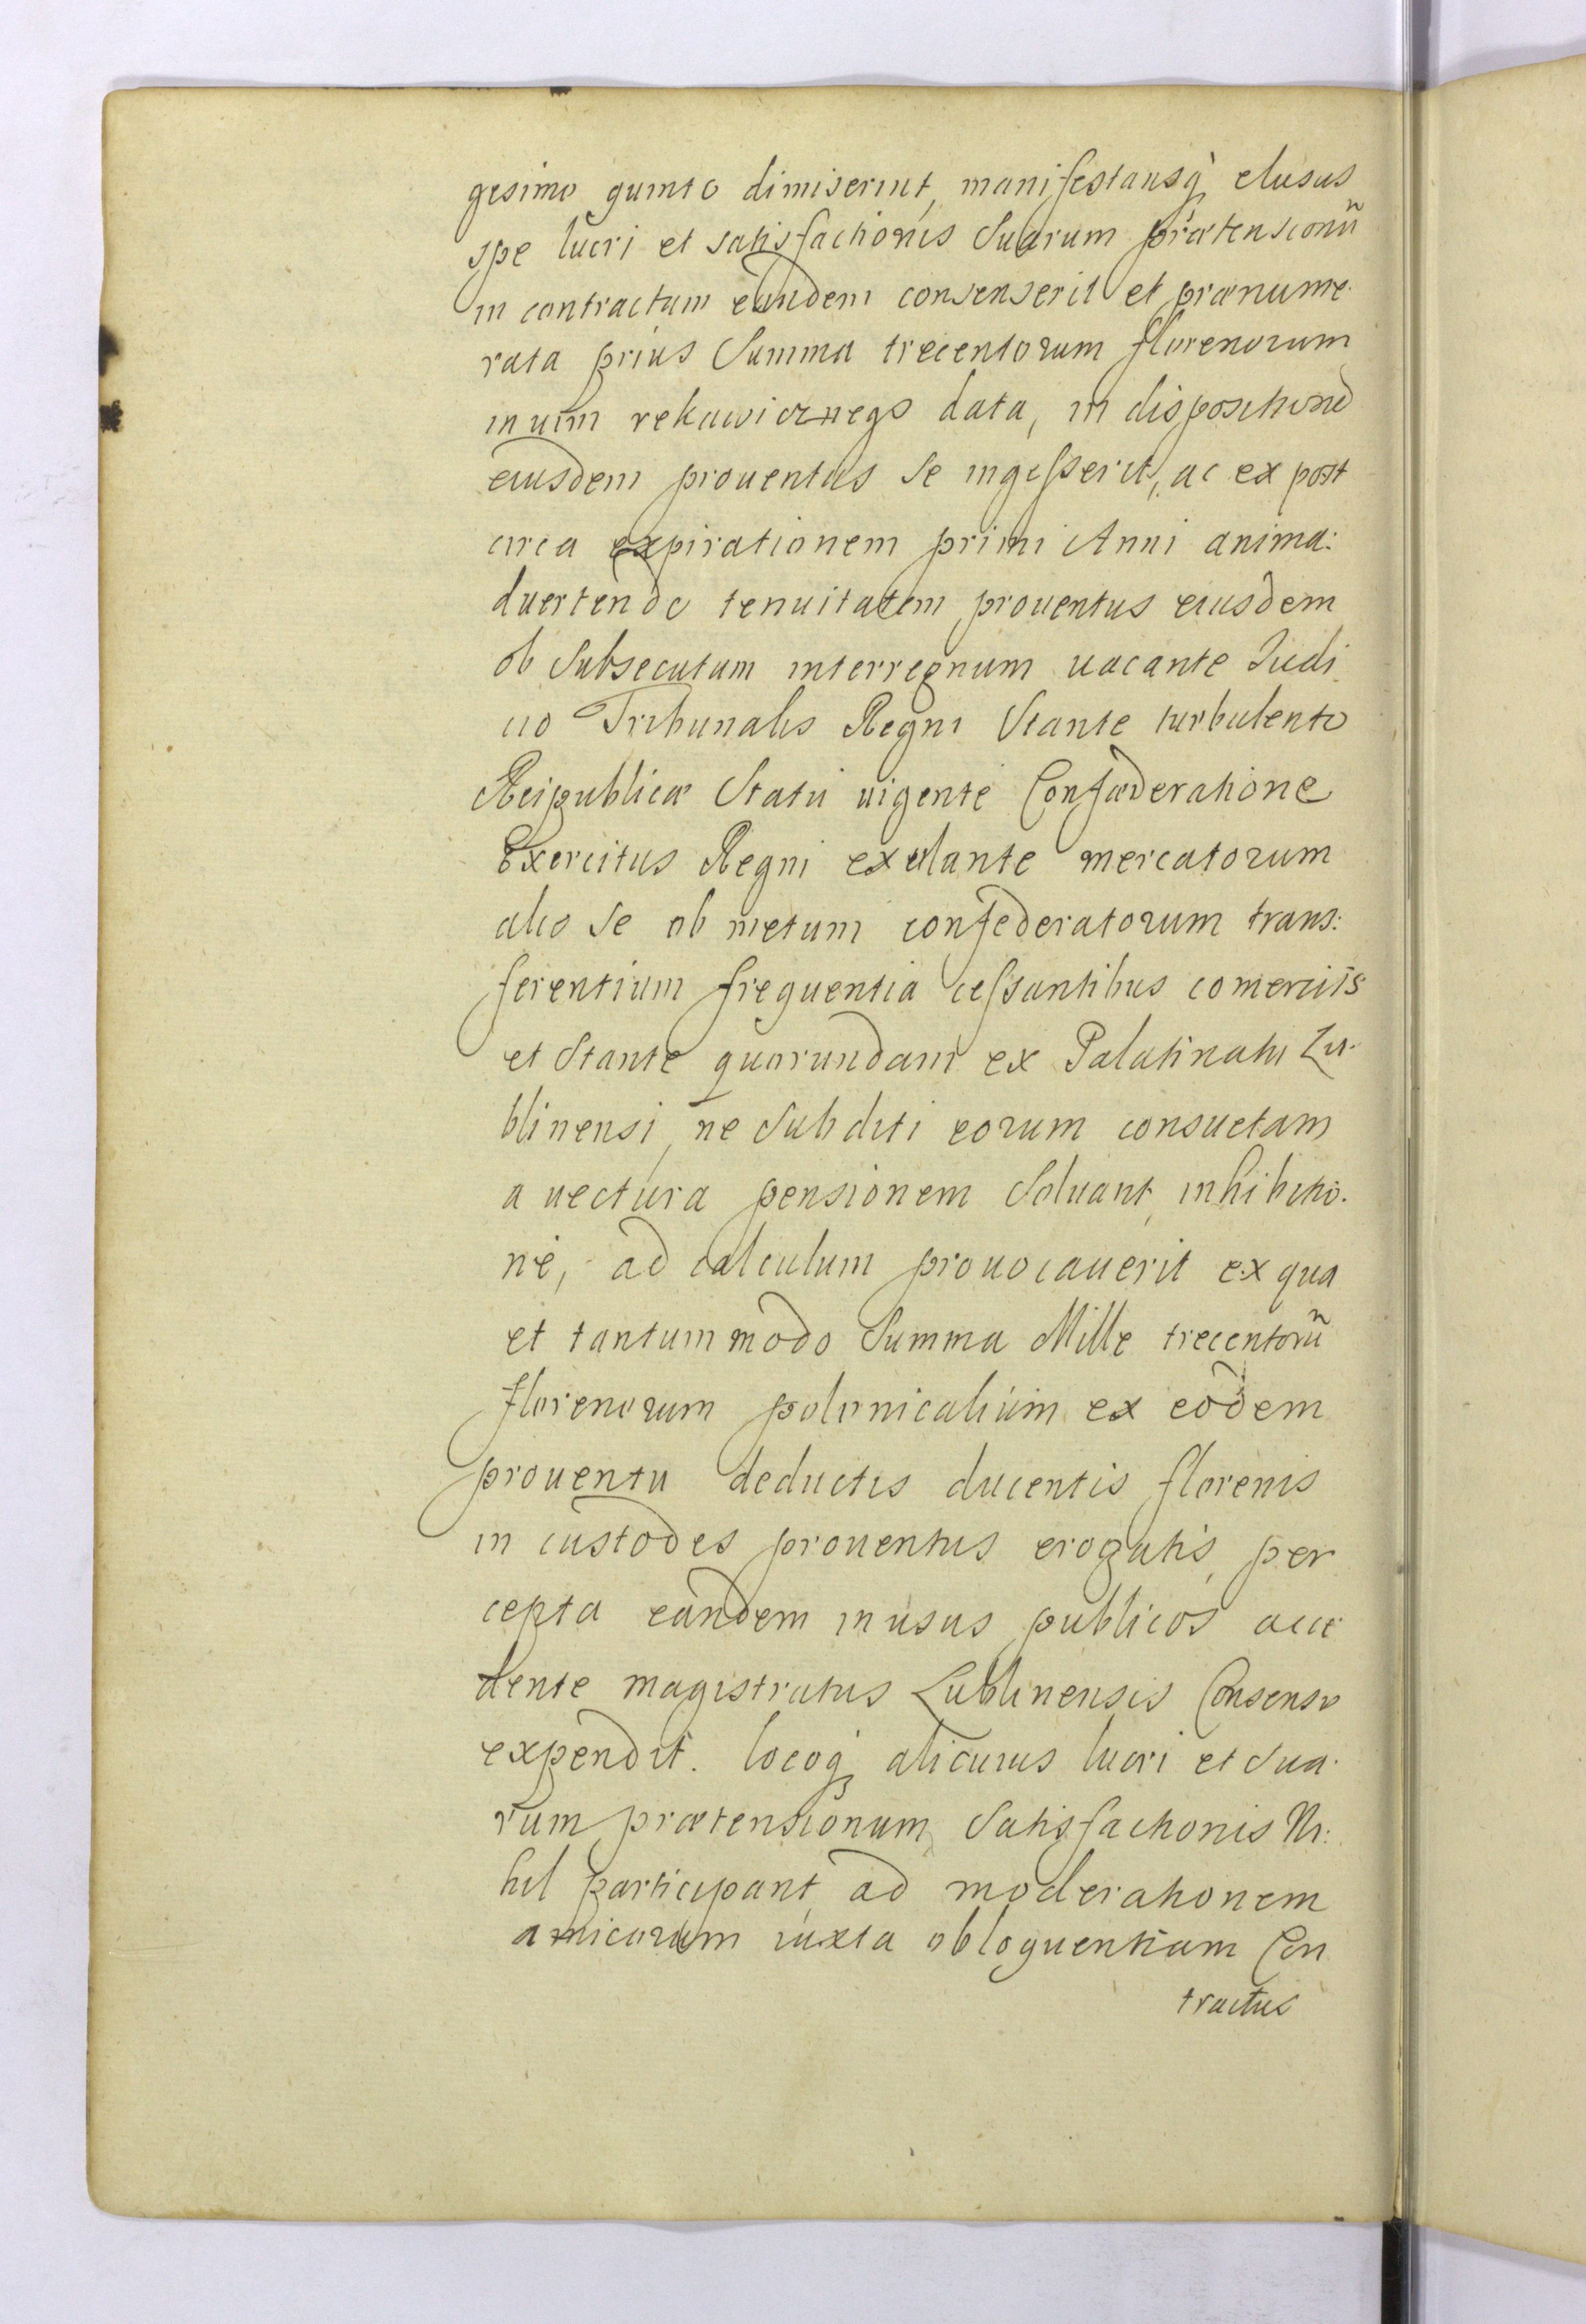 gesimo quinto dimiserint, manifestansq́ elusus
spe lucri et satisfactionis Suarum prætensionũ
in contractum eundem consenserit et prænume-
rata prius Summa trecentorum florenorum
in uim rekawicznego data, in disposihone
eiusdem prouentus se ingesserit, ac ex post
circa expirationem primi Anni anima:
duertendo tenuitatem prouentus eiusdem
ob Subsecutum interregnum uacante Judi
cio Tribunalis Regni Stante turbulento
Reipublicæ Statu uigente Confæderatione
Exercitus Regni exulante mercatorum
alio se ob metum confederatorum trans:
ferentium frequentia cessantibus comerciis
et Stante quorundam ex Palatinatu Lu-
blinensi, ne Subditi eorum consuetam
a uectura pensionem Soluant, inhibitio-
ne, ad calculum prouocauerit ex qua
et tantummodo Summa Mille trecentorũ
florenorum polonicalium ex eodem
prouentu deductis ducentis florenis
in custodes prouentus erogatis, per
cepta eandem in usus publicos acce
dente magistratus Lublinensis Consensu
expendit. locoq́ alicuius lucri et Sua-
rum prætensionum Satisfactionis Ni:
hil participant, ad moderationem
amicorum iuxta obloquentiam Con
tractus